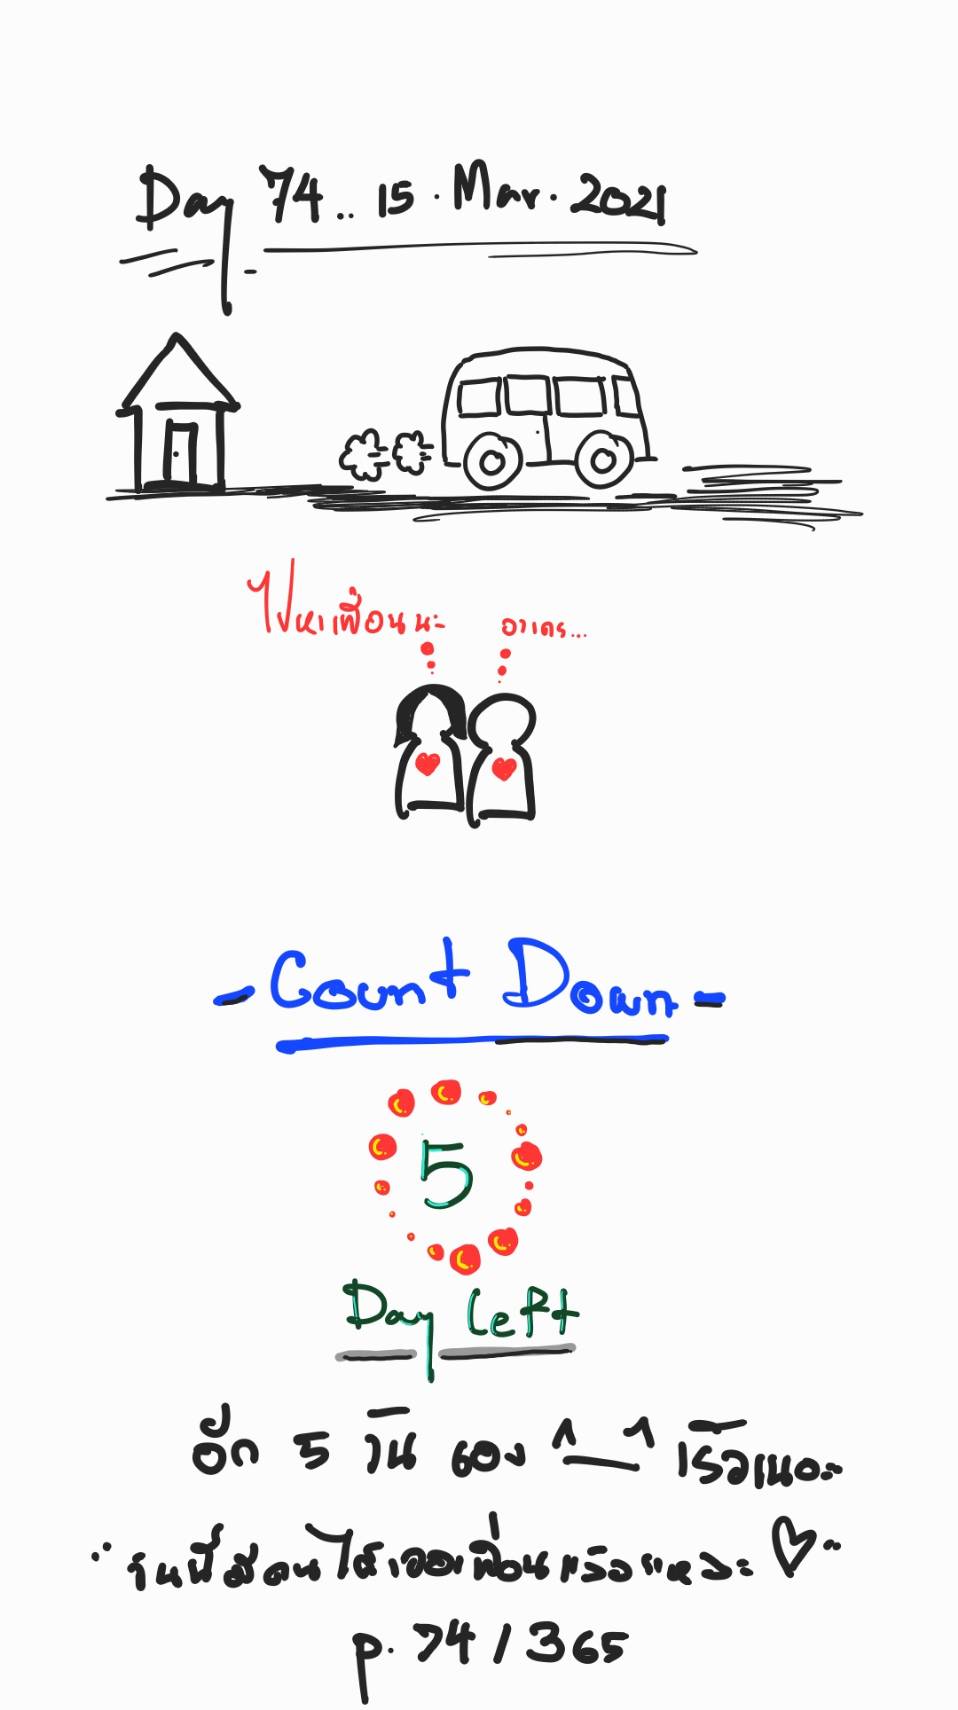 Day 74.. 15 . Mar . 2021
ไปหาเพื่อนนะ
อาเคร...
- Count Down -
5
Day Left
อีก 5 วัน เอง ^__^ เร็วเนอะ~
วันนี้มีคนได้เจอเพื่อนแล้วแหละ ♡~
p. 74 / 365